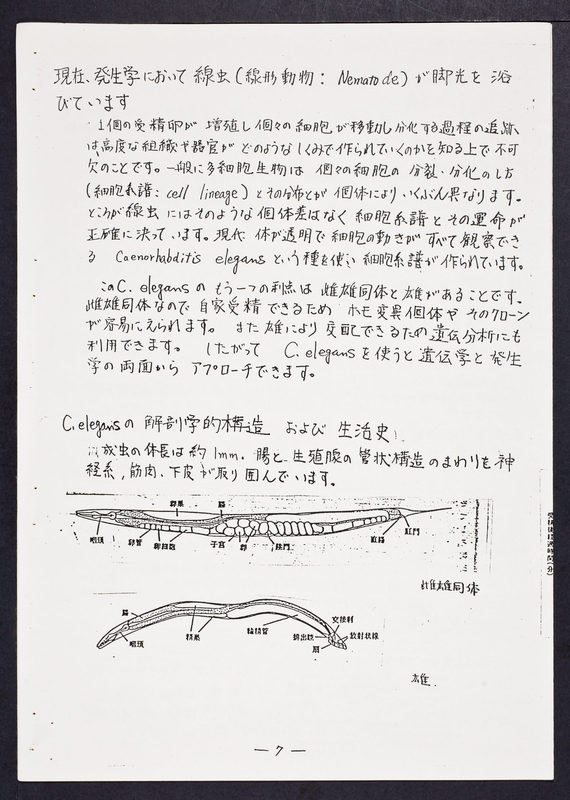 現在、発生学において線虫(線形動物: Nematode)が脚光を浴
びています
1個の受精卵が増殖し個々の細胞が移動し分化する過程の追跡
は高度な組織や器官がどのようなしくみで作られていくのかを知る上で不可
欠のことです。一般に多細胞生物は個々の細胞の分裂・分化のし方
(細胞系譜: cell lineage)とその分布とが個体によりいくぶん異なります。
ところが線虫にはそのような個体差はなく細胞系譜とその運命が
正確に決っています。現代 体が透明で細胞の動きがすべて観察でき
る Caenorhabditis elegansという種を使い細胞系譜が作られています。
このC. elegansのもう一つの利点は雌雄同体と雄があることです。
雌雄同体なので自家受精できるためホモ変異個体やそのクローン
が容易にえられます。また雄により交配できるため遺伝分析にも
利用できます。したがって C. elegansを使うと遺伝学と発生
学の両面からアプローチできます。
C. elegansの解剖学的構造 および 生活史
成虫の体長は約1mm. 腸と生殖腺の管状構造のまわりを神
経系,筋肉,下皮が取り囲んでいます。
卵巣 腸
咽頭 卵管 卵細胞 子宮 卵 陰門 直腸 肛門
雌雄同体
腸 交接刺
咽頭 精巣 輸精管 排出腔 放射状線
扇
雄
— 7 —